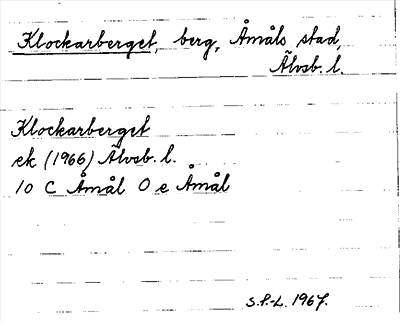 Klockarberget, berg, Åmåls stad,
Älvsb. l.
Klockarberget
ek (1966) Älvsb. l.
10 C Åmål O e Åmål
S.P.-L. 1967.